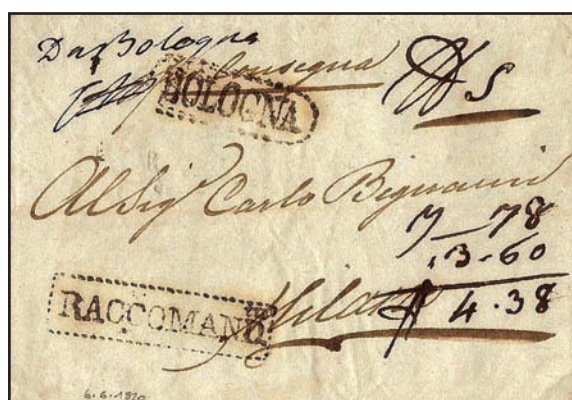 Da Bologna
Consegna
BOLOGNA
5
Al Sig.r Carlo Bignami
7 - 78
13 - 60
Milano
4.38
RACCOMAND
6.6.1820